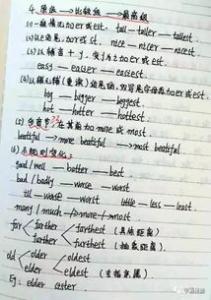 4. 原级 → 比较级 → 最高级
(1) 一般情况加er或est. tall — taller — tallest
nice — nicer — nicest
(3) 以辅音+y, 变y为i加er或est
easy — easier — easiest
big — bigger — biggest
hot — hotter — hottest
(5) 多音节 在其前加 more 或 most.
beatiful → more beatiful → most beatiful
(6) 不规则变化:
good / well — better — best
bad / badly — worse — worst
ill — worse — worst little — less — least
many / much — more — most
far farther farthest (具体距离)
further furthest (抽象距离)
old older oldest
elder eldest (
Eg: elder sister